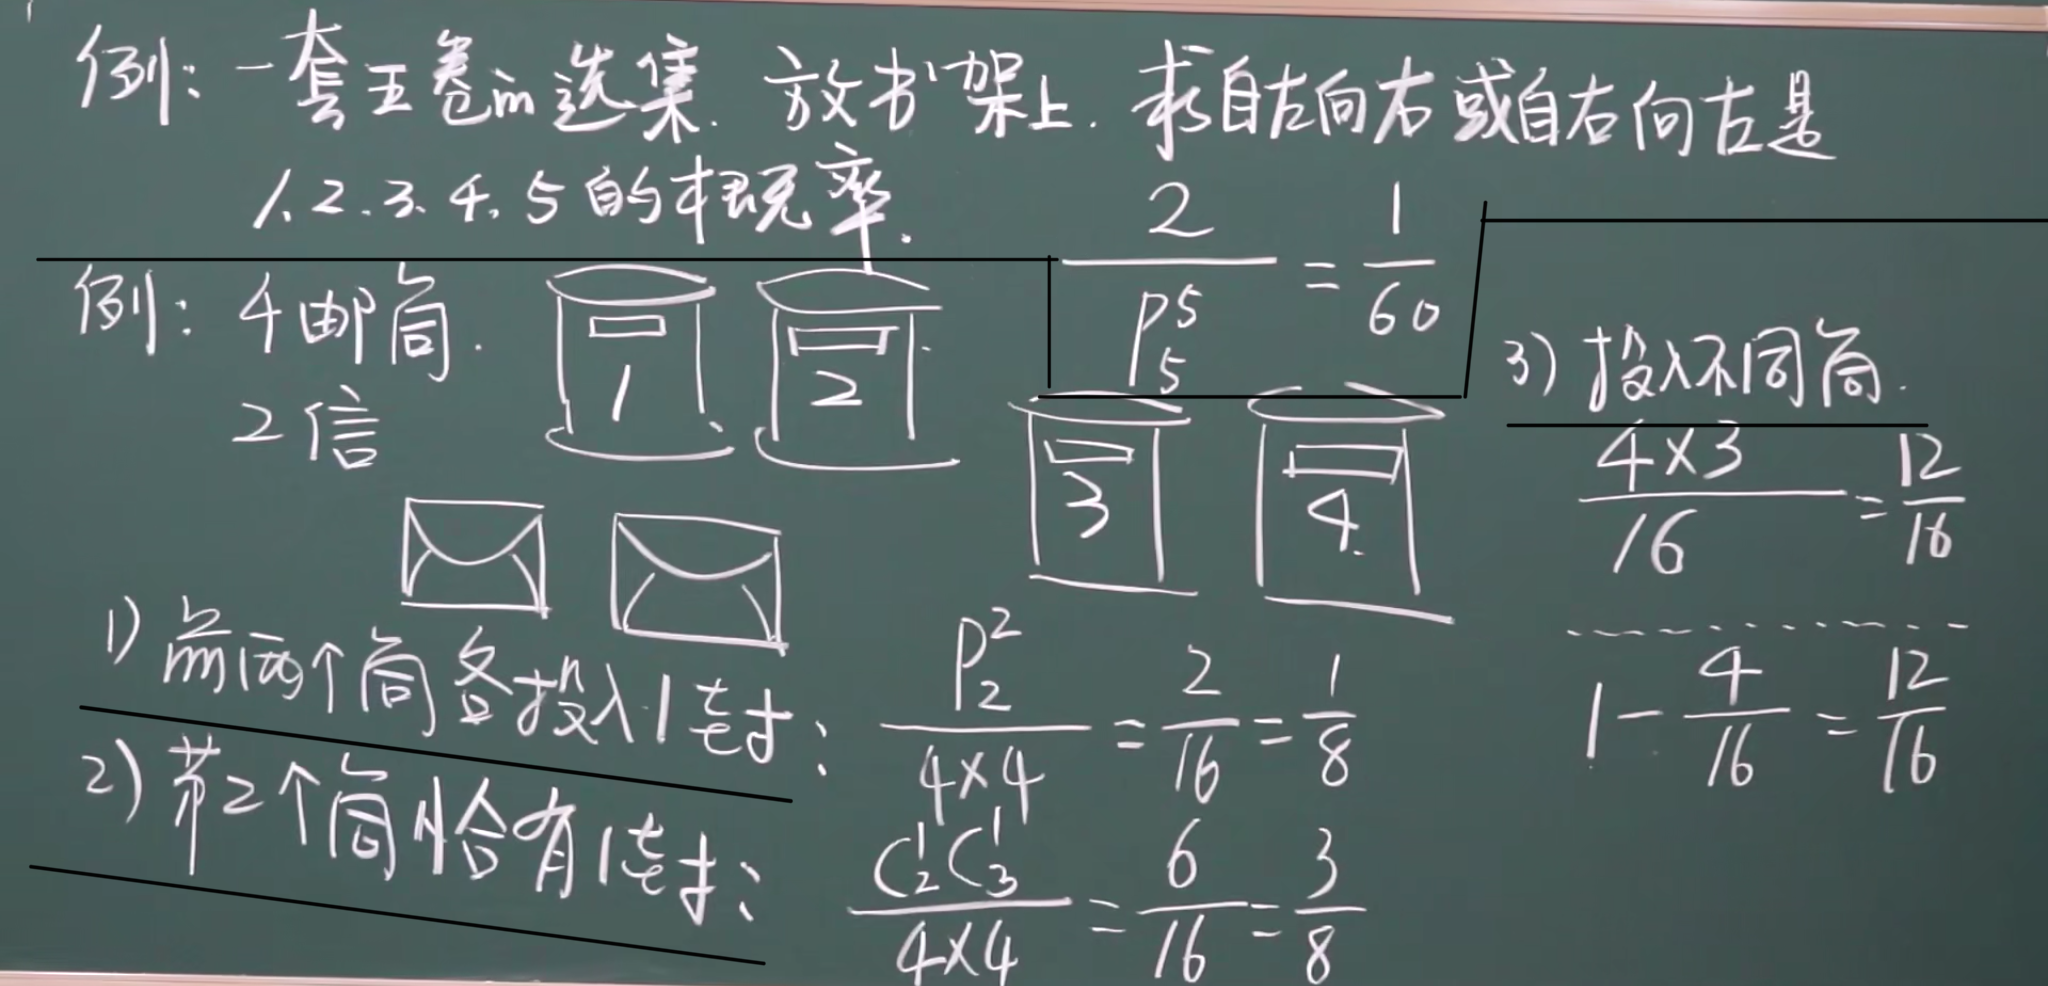 例: 一套五卷m选集. 放书架上. 求自左向右或自右向左是
1.2.3.4.5的概率.
2/P_5^5 = 1/60
例: 4邮筒.
2信
1
2
3
4
1) 前两个筒各投入1封: P_2^2/4×4 = 2/16 = 1/8
2) 第2个筒恰有1封: C_2^1C_3^1/4×4 = 6/16 = 3/8
3) 投入不同筒.
4×3/16 = 12/16
1-4/16 = 12/16